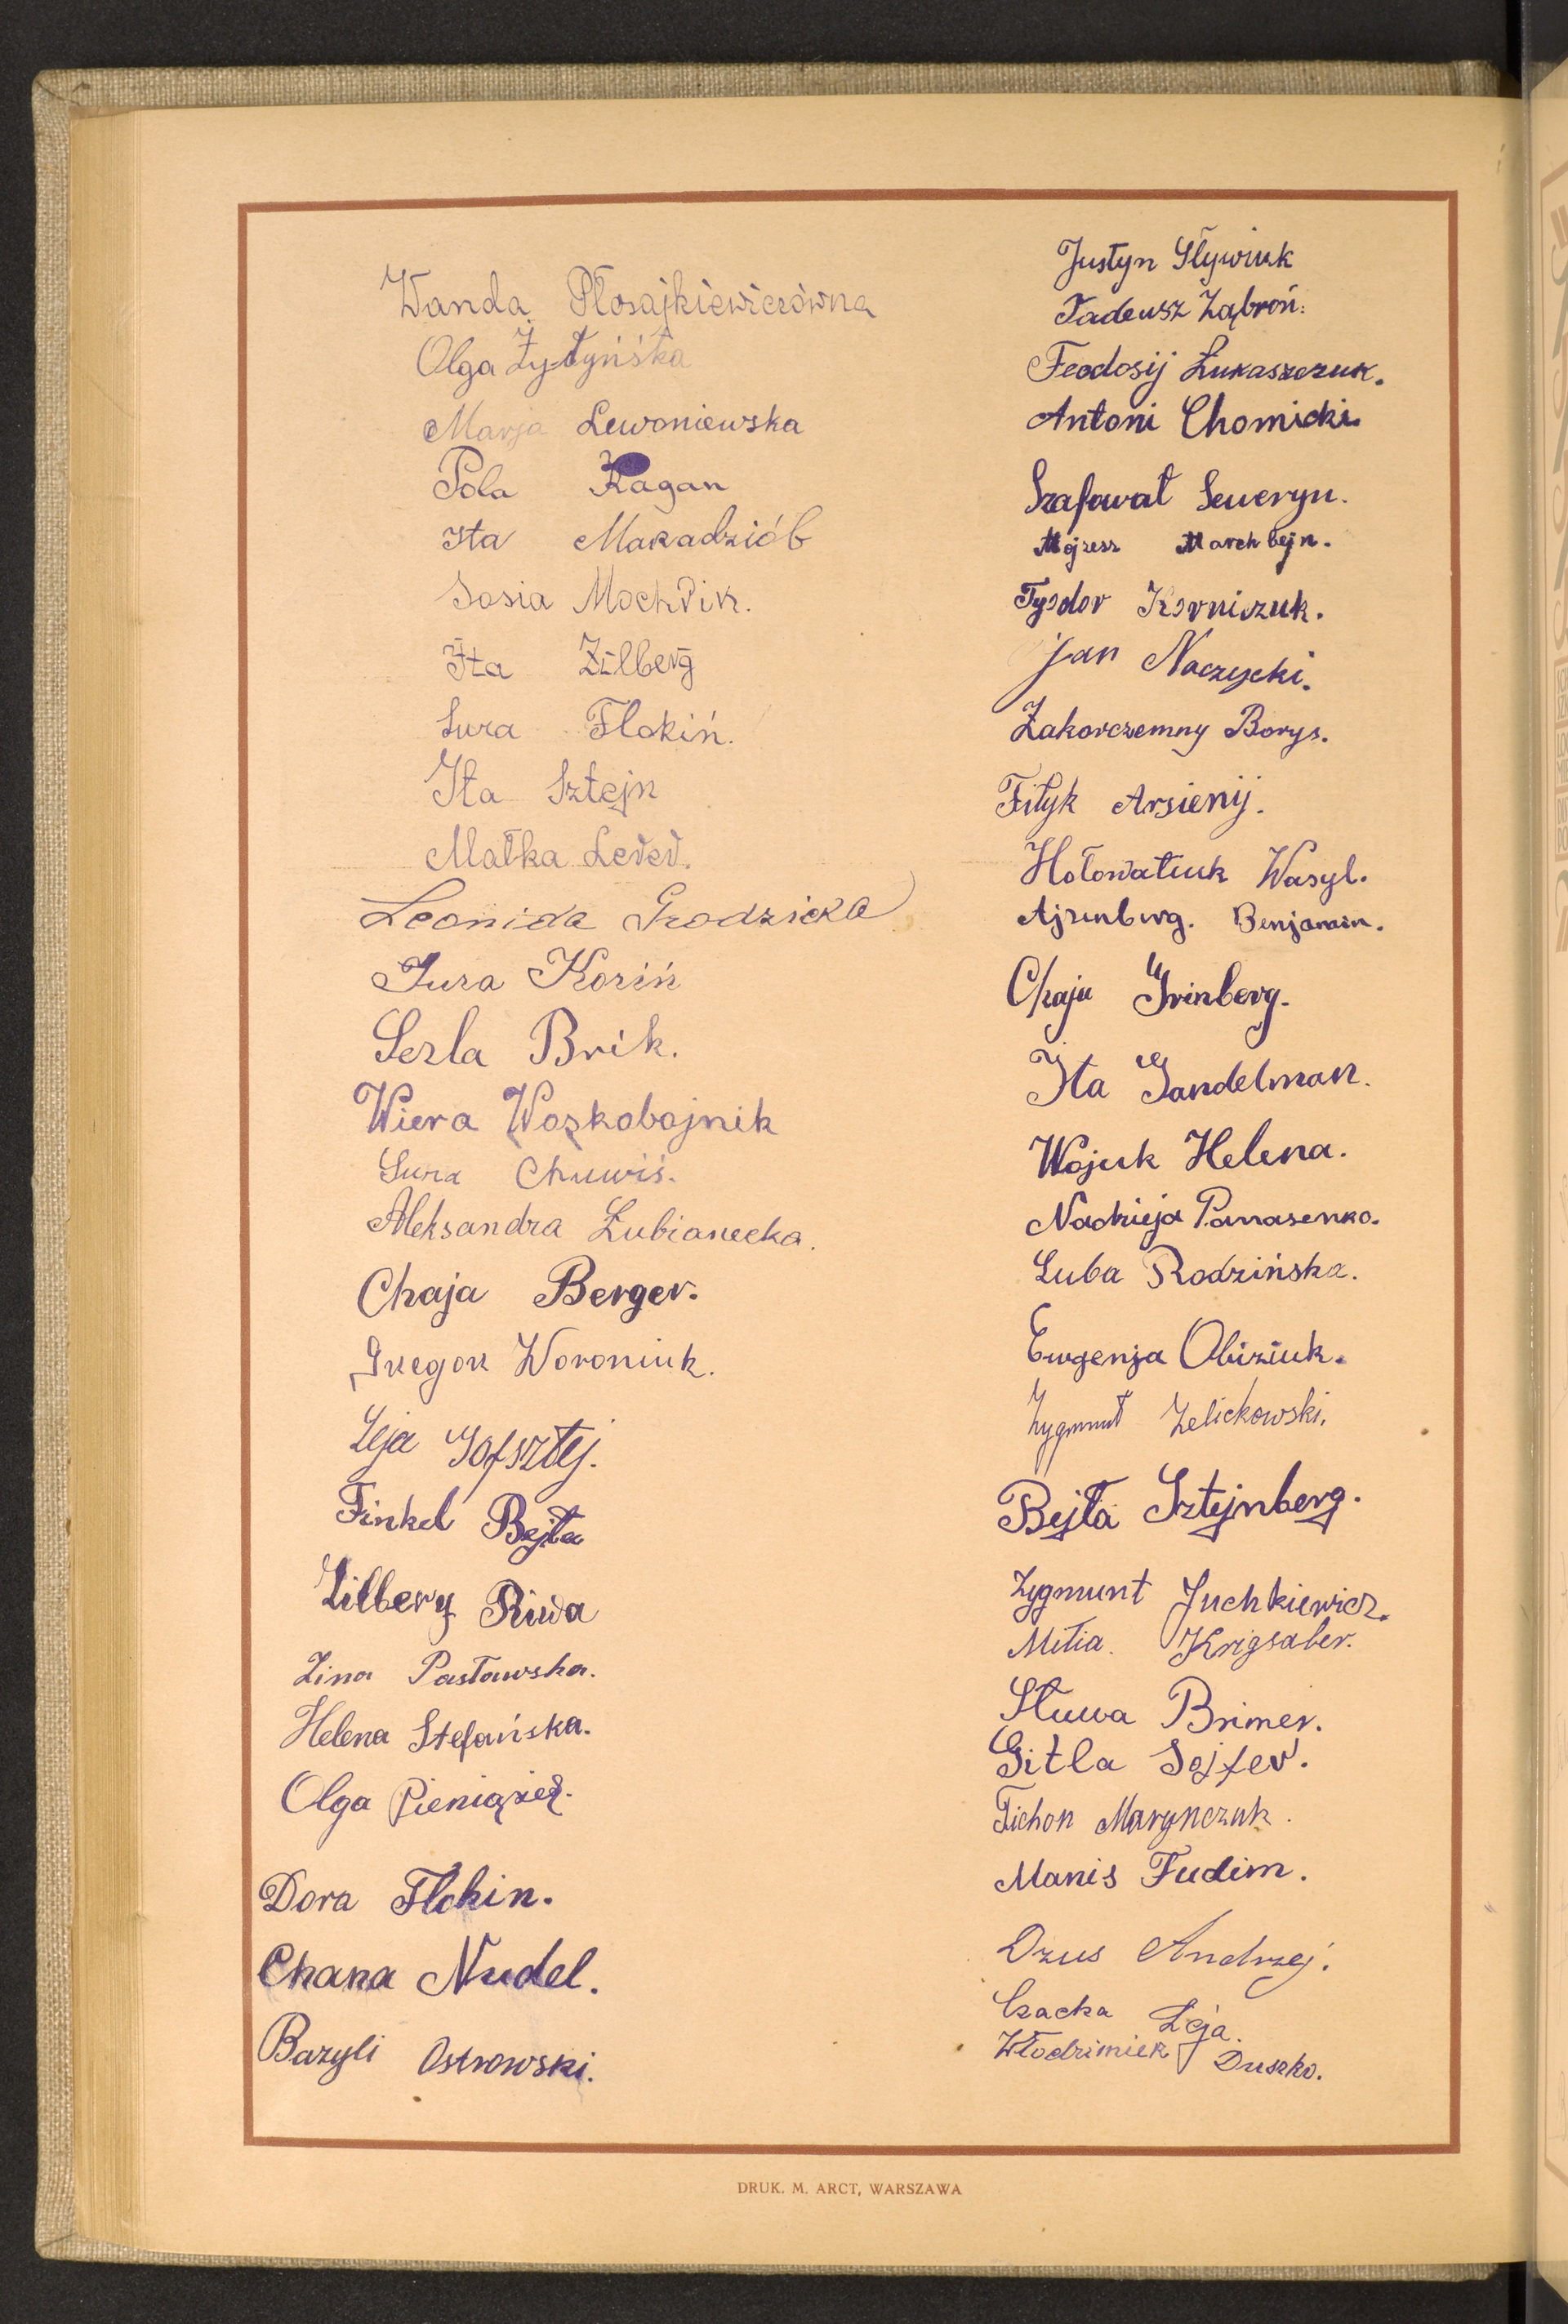 Wanda Płosajkiewiczówna
Olga Żytyńska
Marja Lewoniewska
Pola Kagan
Ita Makadziób
Sosia Mochdik.
Ita Zilberg
Sura Flakin.
Ita Sztejn
Małka Leder.
Leonida Grodzicka
Sura Korin
Serla Brik.
Wiera Woskobojnik
Sura Chuwiś.
Aleksandra Łubianecka.
Chaja Berger.
Gregor Woroniuk.
Leja Gofsztej.
Finkel Bejta
Zilberg Riwa
Zina Pasławska.
Helena Stefańska.
Olga
Dora Flokin.
Chana Nudel.
Bazyli Ostrowski.
Justyn Sływiuk
Tadeusz Ząbroń.
Feodosij Łukaszczuk.
Antoni Chomicki.
Szafował Seweryn.
Mojzesz Marchbejn.
Korniczuk.
Jan Naczycki.
Zakorczemny Borys.
Fityk Arsienij.
Hołowatiuk Wasyl.
Ajzenberg. Benjamin.
Chaja Grinberg.
Ita Gandelman.
Wojuk Helena.
Nadzieja Panasenko.
Luba Rodzińska.
Eugenja Obiziuk.
Zygmunt Zelickowski.
Bejła Sztejnberg.
Zygmunt Juchkiewicz.
Mitia. Krigsaber.
Słuwa Brimer.
Gitla Sojfer.
Tichon Marynczuk.
Manis Fudim.
Dzus Andrzej.
Czacka Leja.
Włodzimierz Duszko.
DRUK. M. ARCT, WARSZAWA